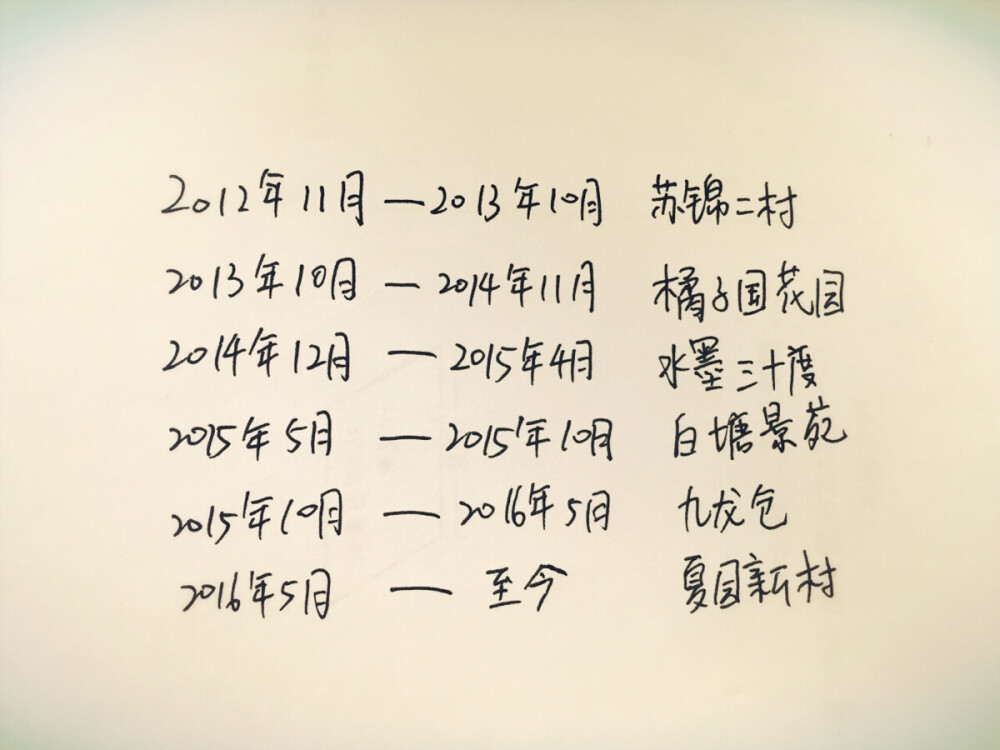 2012年11月—2013年10月 苏锦二村
2013年10月—2014年11月 橘子国花园
2014年12月—2015年4月 水墨三十度
2015年5月—2015年10月 白塘景苑
2015年10月—2016年5月 九龙仓
2016年5月—至今 夏园新村